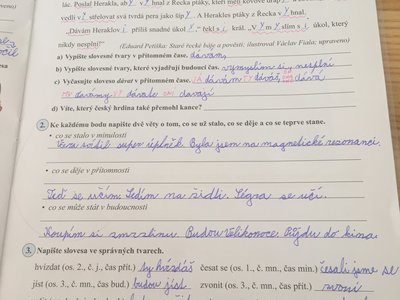 lác. Poslal Herakla, aby vyhnal z Řecka ptáky, kteří měli kovové drápy
vedli vi střelovat svá tvrdá pera jako šíp y. A Herakles ptáky z Řecka v y hnal.
„Dávám Heraklov i jeden snadný úkol,“ řekl s i král. „V y m y slím s i úkol, který
nikdy nesplní!“ (Eduard Petiška: Staré řecké báje a pověsti; ilustroval Václav Fiala; upraveno)
a) Vypište slovesné tvary v přítomném čase. dávám,
b) Vypište slovesné tvary, které vyjadřují budoucí čas. vymyslím si, nesplní
c) Vyčasujte sloveso dávat v přítomném čase. JÁ dávám TY dáváš, ON dává
MY dáváme VY dáváte ONI dávají
d) Víte, který český hrdina také přemohl kance?
2. Ke každému bodu napište dvě věty o tom, co se už stalo, co se děje a co se teprve stane.
• co se stalo v minulosti
Včera svítil super úplněk. Byla jsem na magnetické rezonanci.
• co se děje v přítomnosti
Teď se učím. Sedím na židli. Ségra se učí.
• co se může stát v budoucnosti
Koupím si zmrzlinu. Budou Velikonoce. Půjdu do kina.
3. Napište slovesa ve správných tvarech.
hvízdat (os. 2., č. j., čas přít.) ty hvízdáš česat se (os. 1., č. mn., čas min.) česali jsme se
jíst (os. 3., č. mn., čas bud.) budou jíst zvonit (os. 3., č. mn., čas přít.) zvoní